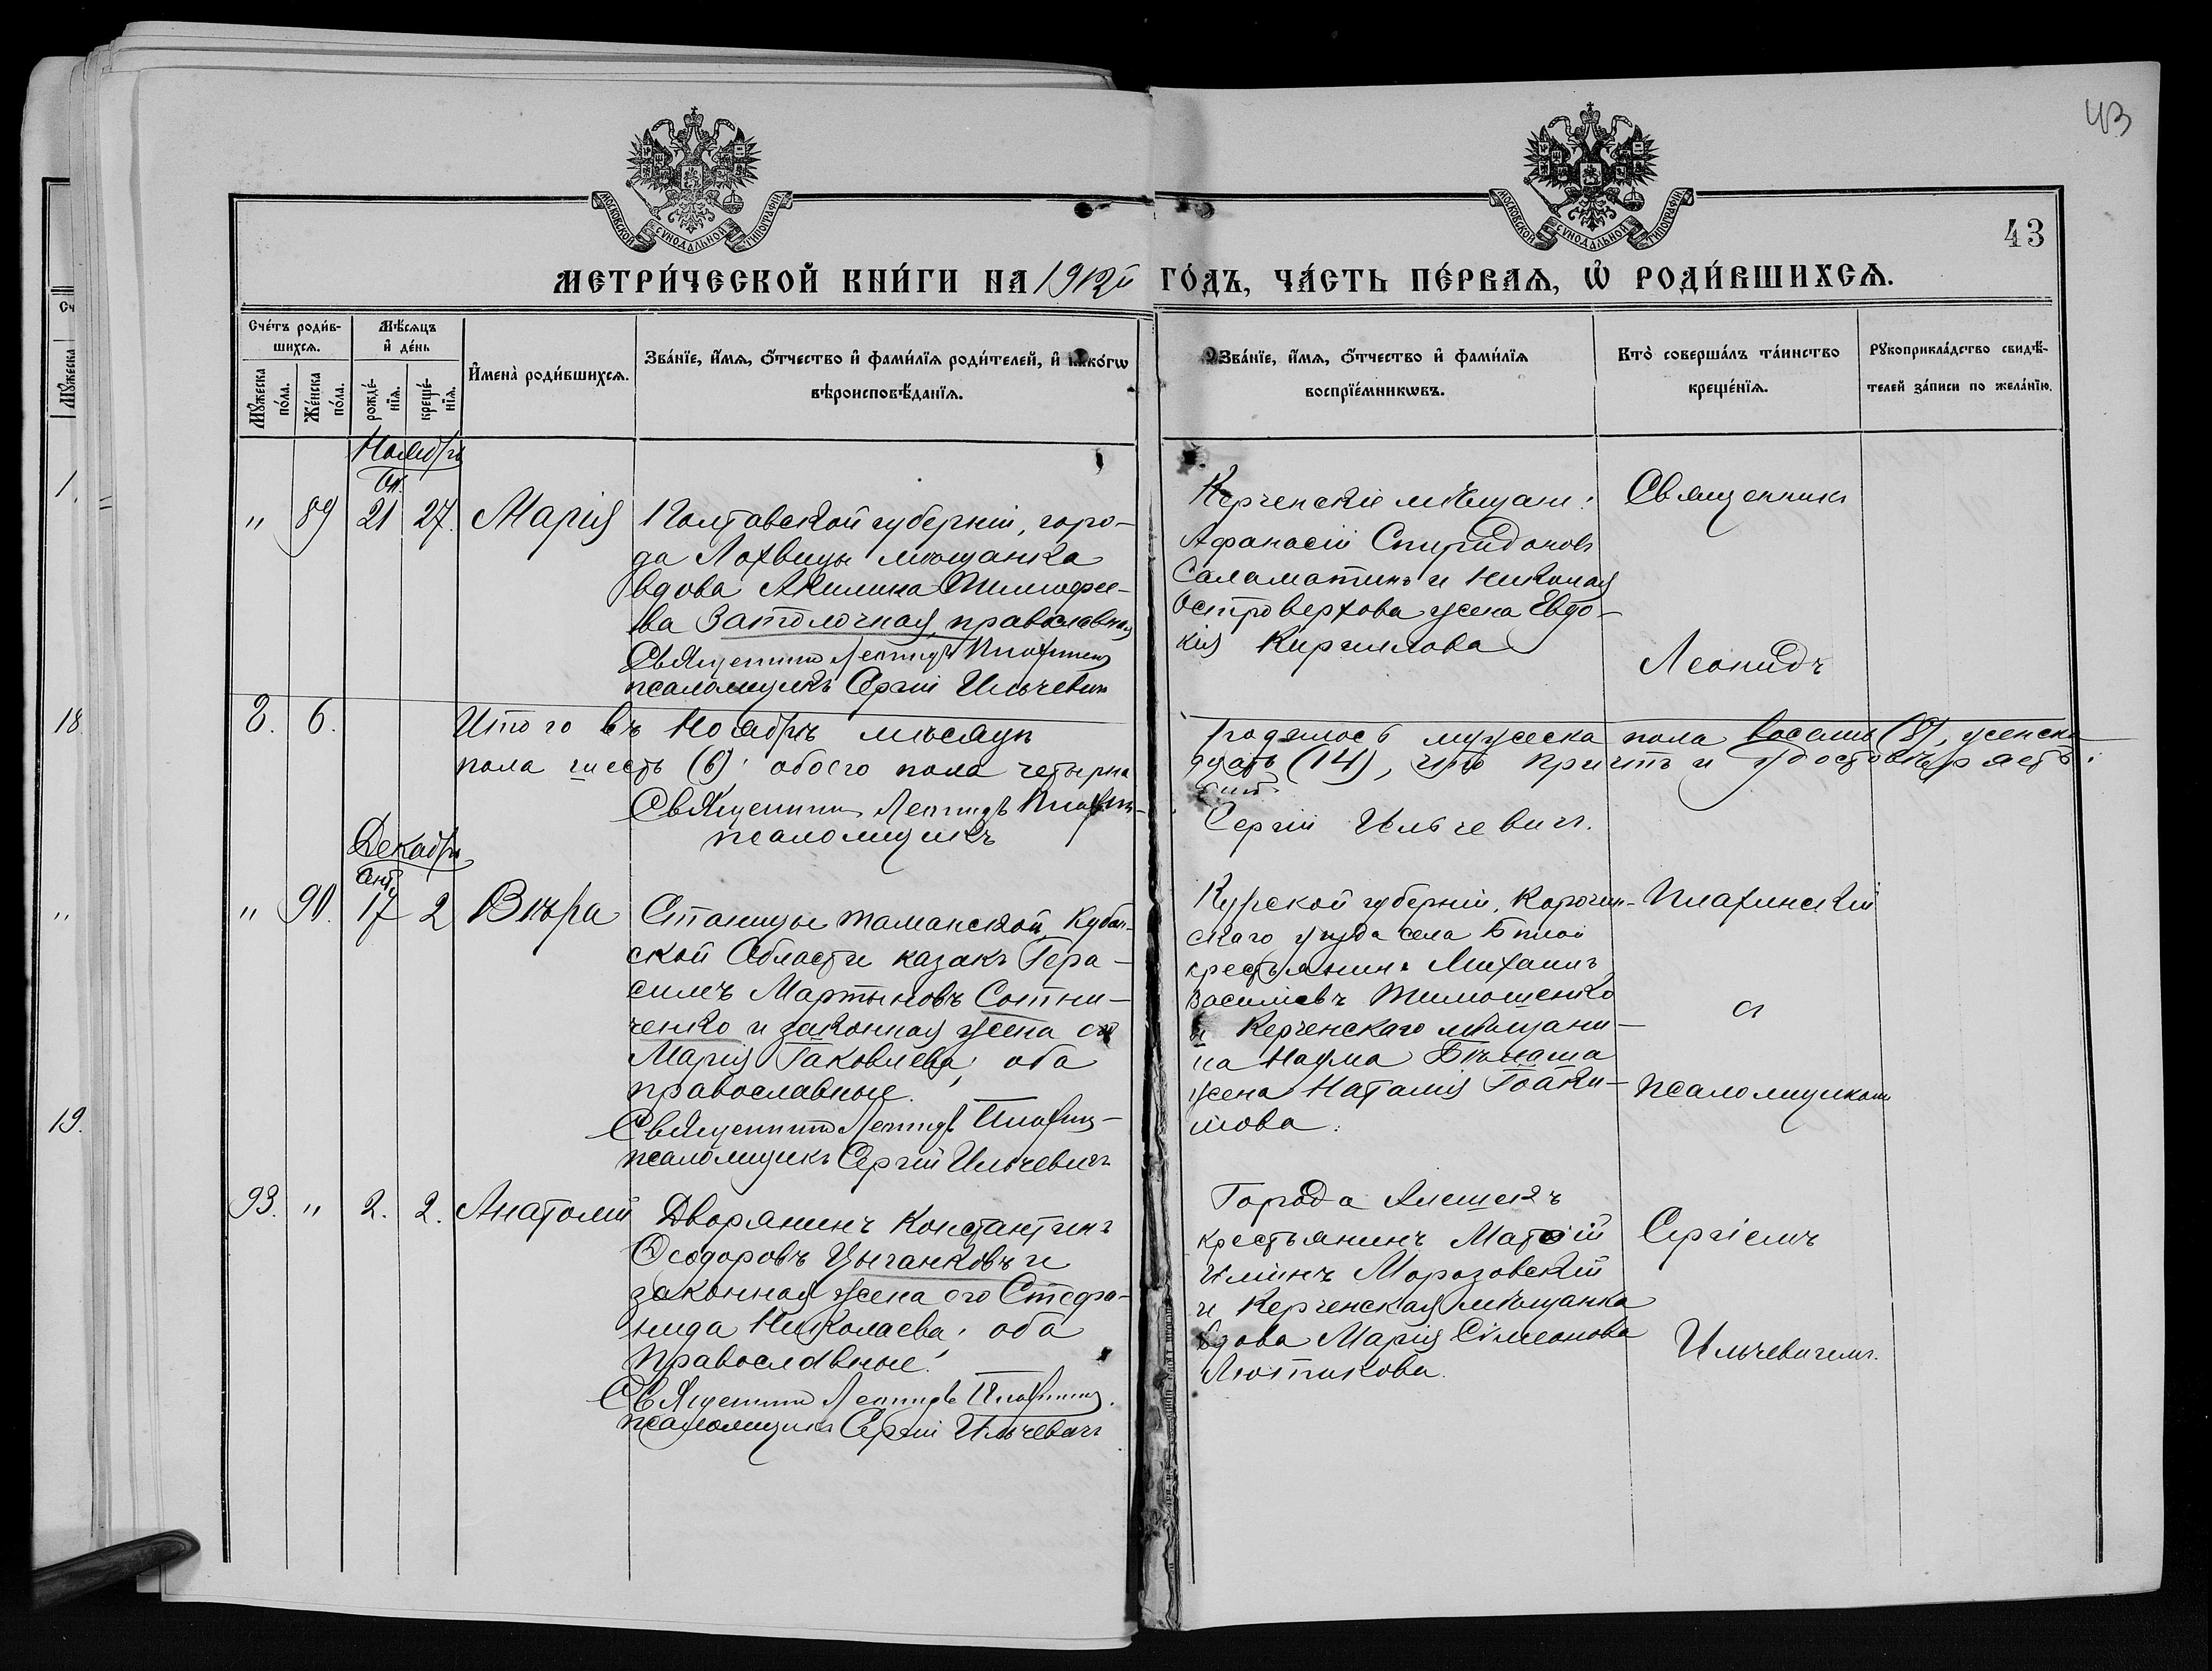 43
МОСКОВСКОЙ СѴНОДАЛЬНОЙ ТИПОГРАФІИ
МОСКОВСКОЙ СѴНОДАЛЬНОЙ ТИПОГРАФІИ
43
МЕТРИ́ЧЕСКОЙ КНИ́ГИ НА 1912й ГО́ДЪ, ЧА́СТЬ ПЕ́РВАЯ, Ѿ РОДИ́ВШИХСЯ.
Сче́тъ роди́в-
шихся.
Мѣ́сяцъ
и де́нь
Мꙋжеска по́ла.
Же́нска по́ла.
рожде́-
нїя.
креще́-
нїя.
И҆мена̀ роди́вшихся.
Зва́нїе, и҆́мя, ѻ҆́тчество и҆ фами́лїя роди́телей, и҆ како́гѡ
вѣроисповѣ́данїя.
Зва́нїе, и҆́мя, ѻ҆́тчество и҆ фами́лїя
воспрїе́мникѡвъ.
Кто̀ соверша́лъ та́инство
креще́нїя.
Рꙋкоприкла́дство свидѣ́-
телей за́писи по жела́нїю.
Ноябрь
"
89
21
27.
Марія
Полтавской губерніи, горо-
да Лохвицы мѣщанка
вдова Акилина Тимофее-
ва Затолочная, православная
Священникъ Леонидъ
псаломщикъ Сергій Ильчевичъ
Керченскіе мѣщане:
Афанасій Спиридоновъ
Саламатинъ и Николая
Островерхова жена Евдо-
кія Кириллова
Священникъ
Леонидъ
8.
6.
Итого въ Ноябрѣ мѣсяцѣ родилось мужеска пола восемь (8), женска
пола шесть (6); обоего пола четырна дцать (14), что причтъ и удостовѣряетъ:
Священникъ Леонидъ
псаломщикъ Сергій Ильчевичъ.
Декабрь
Сент.
"
90.
17
2
Вѣра
Станицы Таманской, Кубан-
ской Области казакъ Гера-
симъ Мартыновъ Сотни-
ченко и законная жена его
Марія Іаковлева; оба
православные.
Священникъ Леонидъ
псаломщикъ Сергій Ильчевичъ
Курской губерніи, Корочан-
скаго уѣзда села Бѣлой
крестьянинъ Михаилъ
Василіевъ Тимошенко
и Керченскаго мѣщани-
на Наума
жена Наталія Іоаки-
мова.
Плафинскій
съ
псаломщикомъ
93.
"
2.
2.
Анатолій
Дворянинъ Константинъ
Ѳеодоровъ Цыганковъ и
законная жена его Стефа-
нида Николаева; оба
православные.
Священникъ Леонидъ
псаломщикъ Сергій Ильчевичъ
Города Алешекъ
крестьянинъ Матѳій
Иліинъ Морозовскій
и Керченская мѣщанка
вдова Марія Сімеонова
Лютикова.
Сергіемъ
Ильчевичемъ.
18.
19.